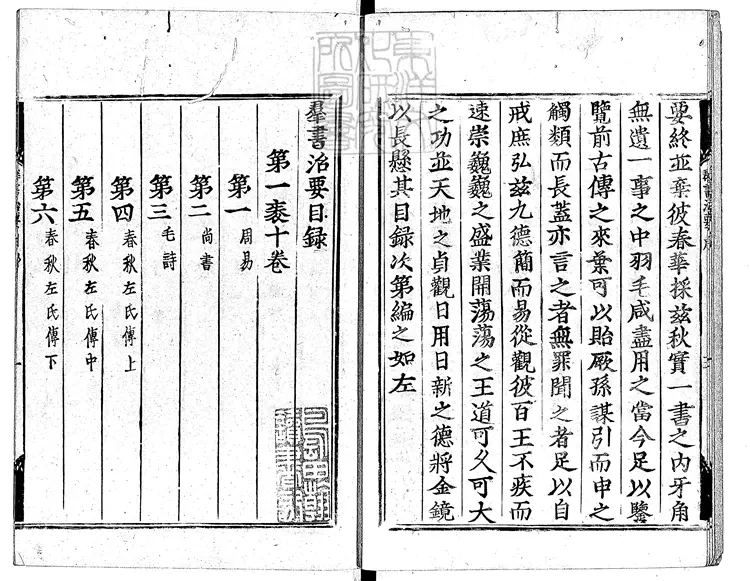 要終並棄彼春華採茲秋實一書之內牙角
無遺一事之中羽毛咸盡用之當今足以鑒
覽前古傳之來葉可以貽厥孫謀引而申之
觸類而長蓋亦言之者無罪聞之者足以自
戒庶弘茲九德簡而易從觀彼百王不疾而
速崇巍巍之盛業開蕩蕩之王道可久可大
之功並天地之貞觀日用日新之德將金鏡
以長懸其目録次第編之如左
羣書治要目録
第一袠十卷
第一 周易
第二 尚書
第三 毛詩
第四 春秋左氏傳上
第五 春秋左氏傳中
第六 春秋左氏傳下